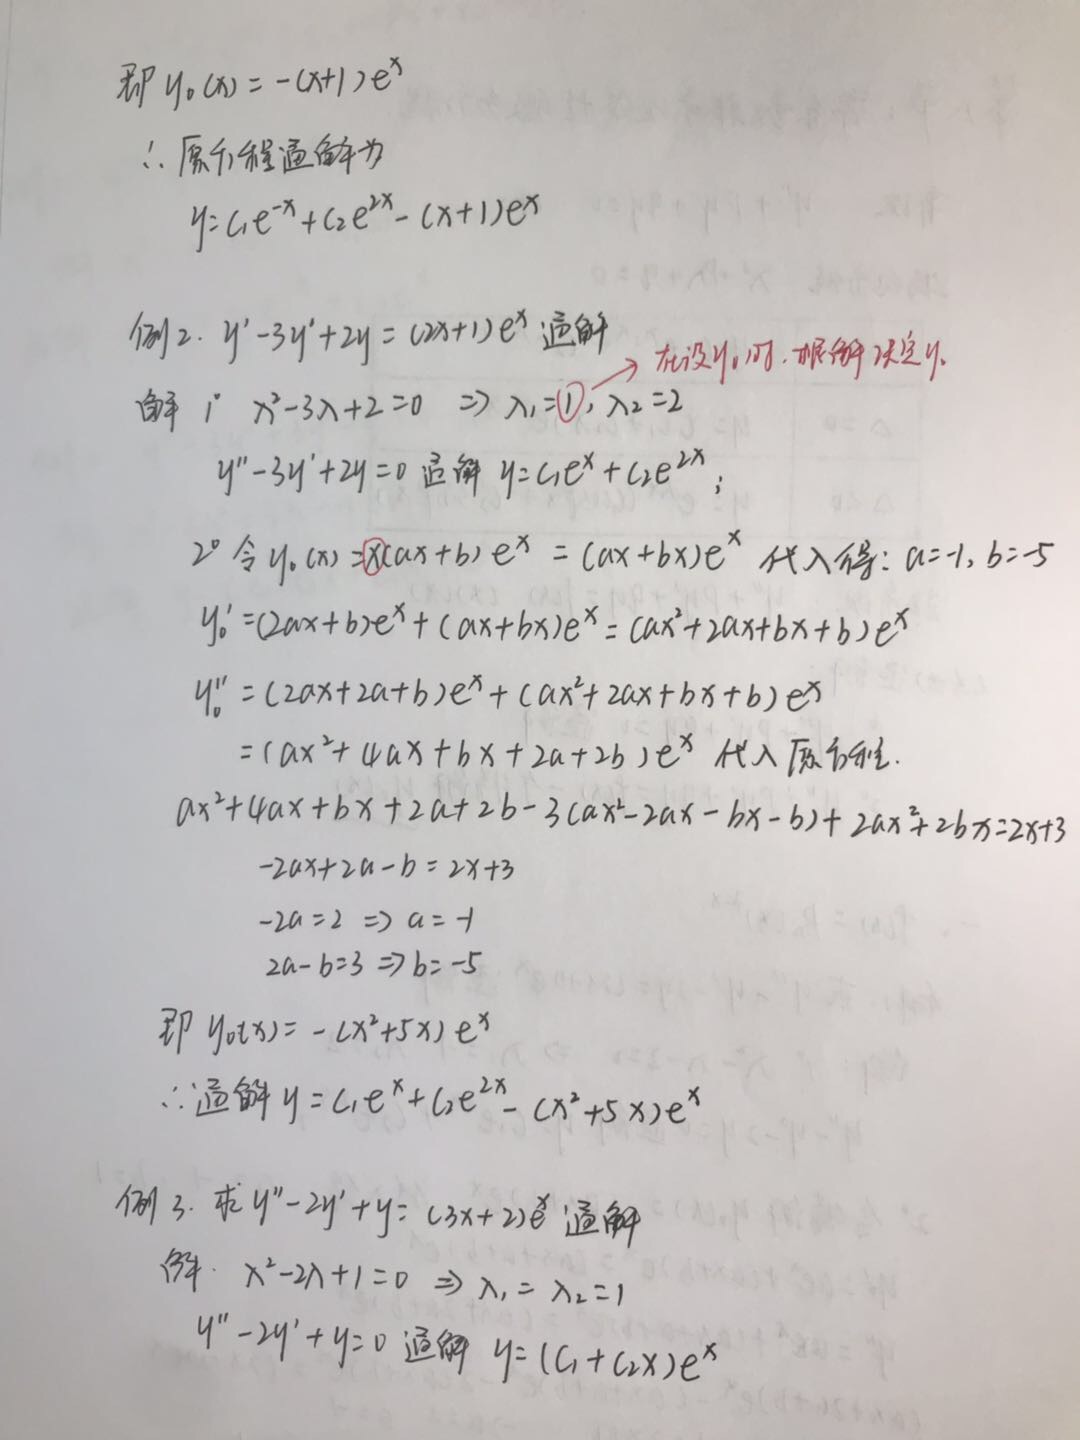 即 y₀(x) = -(x+1)eˣ
∴ 原方程通解为
y=C₁e⁻ˣ+C₂e²ˣ-(x+1)eˣ
例2. y'-3y'+2y=(2x+1)eˣ 通解
→ 在设y₀时.根解决定y₀
解 1° λ²-3λ+2=0 ⇒ λ₁=1, λ₂=2
y''-3y'+2y=0 通解 y=C₁eˣ+C₂e²ˣ;
2° 令 y₀(x)=x(ax+b)eˣ = (ax+bx)eˣ 代入得: a=-1, b=-5
y₀'=(2ax+b)eˣ+(ax+bx)eˣ=(ax²+2ax+bx+b)eˣ
y₀''=(2ax+2a+b)eˣ+(ax²+2ax+bx+b)eˣ
=(ax²+4ax+bx+2a+2b)eˣ 代入原方程.
ax²+4ax+bx+2a+2b-3(ax²-2ax-bx-b)+2ax²+2bx=2x+3
-2ax+2a-b=2x+3
-2a=2 ⇒ a=-1
2a-b=3 ⇒ b=-5
即 y₀(x)=-(x²+5x)eˣ
∴通解 y=C₁eˣ+C₂e²ˣ-(x²+5x)eˣ
例3. 求 y''-2y'+y=(3x+2)eˣ 通解
解. λ²-2λ+1=0 ⇒ λ₁=λ₂=1
y''-2y'+y=0 通解 y=(C₁+C₂x)eˣ